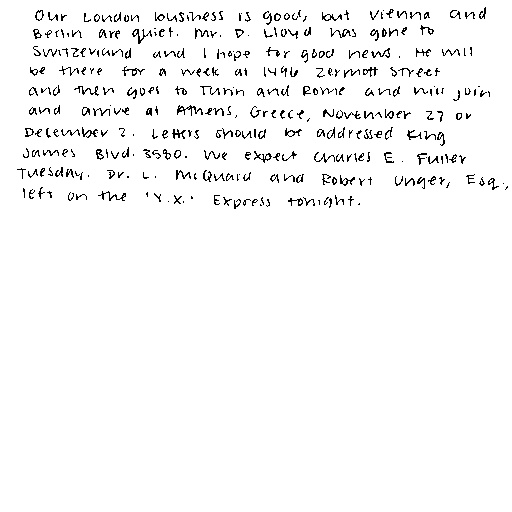 Our London business is good, but Vienna and
Berlin are quiet. Mr. D. Lloyd has gone to
Switzerland and I hope for good news. He will
be there for a week at 1496 Zermott Street
and then goes to Turin and Rome and will join
and arrive at Athens, Greece, November 27 or
December 2. Letters should be addressed King
James Blvd. 3580. We expect Charles E. Fuller
Tuesday. Dr. L. McQuaid and Robert Unger, Esq.,
left on the "Y.X." Express tonight.